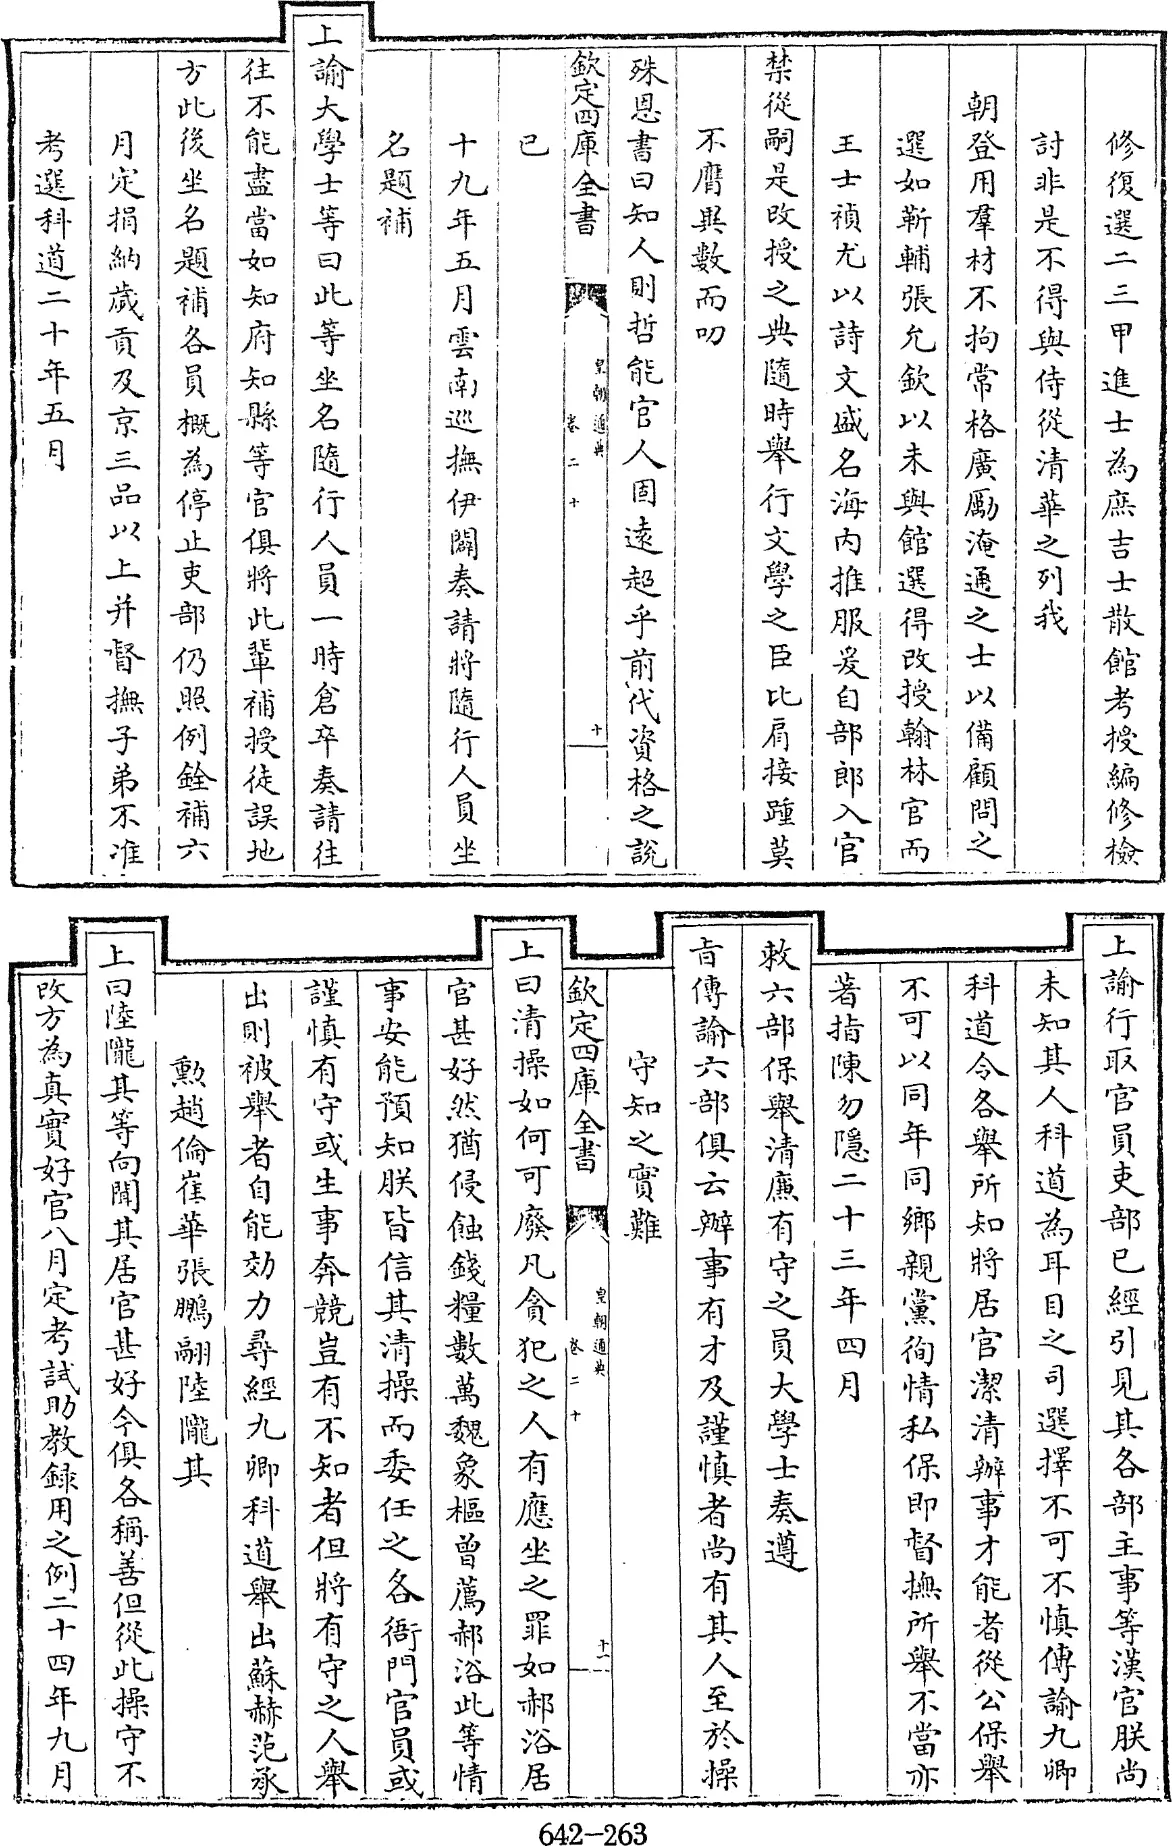 修復選二三甲進士為庶吉士散館考授編修檢
討非是不得與侍從清華之列我
朝登用羣材不拘常格廣勵淹通之士以備顧問之
選如靳輔張允欽以未與館選得改授翰林官而
王士禎尤以詩文盛名海内推服爰自部郎入官
禁從嗣是改授之典隨時舉行文學之臣比肩接踵莫
不膺異數而叨
殊恩書曰知人則哲能官人固遠超乎前代資格之說
欽定四庫全書 皇朝通典 卷二十 十
已
十九年五月雲南巡撫伊闢奏請將隨行人員坐
名題補
上諭大學士等曰此等坐名隨行人員一時倉卒奏請往
往不能盡當如知府知縣等官俱將此輩補授徒誤地
方此後坐名題補各員概為停止吏部仍照例銓補六
月定捐納歲貢及京三品以上并督撫子弟不准
考選科道二十年五月
上諭行取官員吏部已經引見其各部主事等漢官朕尚
未知其人科道為耳目之司選擇不可不慎傳諭九卿
科道令各舉所知將居官潔清辦事才能者從公保舉
不可以同年同鄉親黨徇情私保即督撫所舉不當亦
著指陳勿隱二十三年四月
敕六部保舉清廉有守之員大學士奏遵
旨傳諭六部俱云辦事有才及謹慎者尚有其人至於操
守知之實難
欽定四庫全書 皇朝通典 卷二十 十一
上曰清操如何可廢凡貪犯之人有應坐之罪如郝浴居
官甚好然猶侵蝕錢糧數萬魏象樞曾薦郝浴此等情
事安能預知朕皆信其清操而委任之各衙門官員或
謹慎有守或生事奔競豈有不知者但將有守之人舉
出則被舉者自能効力尋經九卿科道舉出蘇赫范承
勳趙倫崔華張鵬翮陸隴其
上曰陸隴其等向聞其居官甚好今俱各稱善但從此操守不
改方為真實好官八月定考試助教録用之例二十四年九月
642-263